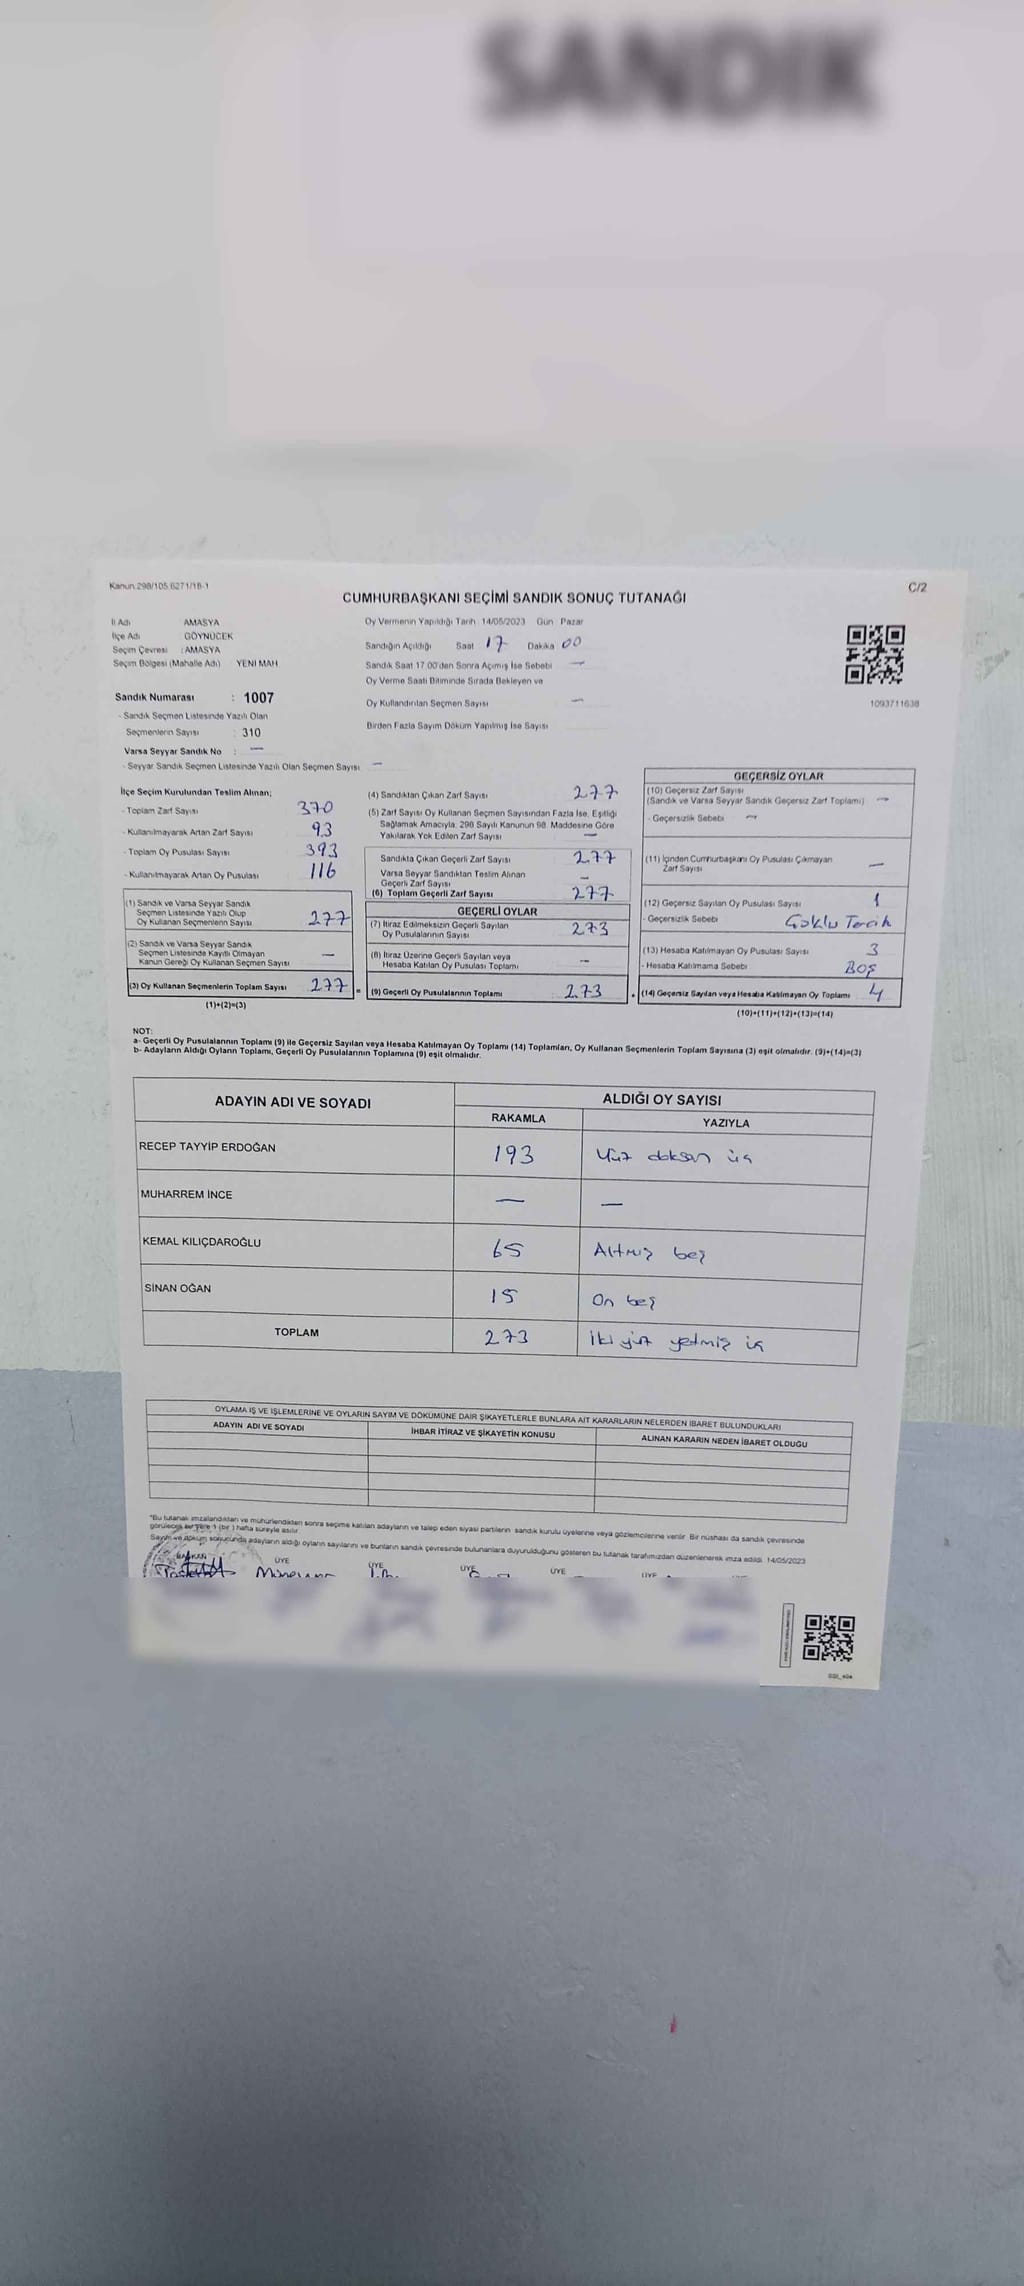 SANDIK
Kanun 298/105 6271/18-1
C/2
CUMHURBAŞKANI SEÇİMİ SANDIK SONUÇ TUTANAĞI
İl Adı AMASYA
İlçe Adı GÖYNÜCEK
Seçim Çevresi : AMASYA
Seçim Bölgesi (Mahalle Adı) YENİ MAH
Sandık Numarası : 1007
- Sandık Seçmen Listesinde Yazılı Olan
Seçmenlerin Sayısı : 310
Varsa Seyyar Sandık No : —
- Seyyar Sandık Seçmen Listesinde Yazılı Olan Seçmen Sayısı —
Oy Vermenin Yapıldığı Tarih 14/05/2023 Gün Pazar
Sandığın Açıldığı Saat 17 Dakika 00
Sandık Saat 17.00'den Sonra Açımış İse Sebebi —
Oy Verme Saati Bitiminde Sırada Bekleyen ve
Oy Kullandırılan Seçmen Sayısı —
Birden Fazla Sayım Döküm Yapılmış İse Sayısı
1093711638
İlçe Seçim Kurulundan Teslim Alınan;
- Toplam Zarf Sayısı 370
- Kullanılmayarak Artan Zarf Sayısı 93
- Toplam Oy Pusulası Sayısı 393
- Kullanılmayarak Artan Oy Pusulası 116
(1) Sandık ve Varsa Seyyar Sandık
Seçmen Listesinde Yazılı Olup
Oy Kullanan Seçmenlerin Sayısı 277
(2) Sandık ve Varsa Seyyar Sandık
Seçmen Listesinde Kayıtlı Olmayan
Kanun Gereği Oy Kullanan Seçmen Sayısı —
(3) Oy Kullanan Seçmenlerin Toplam Sayısı 277 =
(1)+(2)=(3)
(4) Sandıktan Çıkan Zarf Sayısı 277
(5) Zarf Sayısı Oy Kullanan Seçmen Sayısından Fazla İse, Eşitliği
Sağlamak Amacıyla, 298 Sayılı Kanunun 98. Maddesine Göre
Yakılarak Yok Edilen Zarf Sayısı —
Sandıkta Çıkan Geçerli Zarf Sayısı 277
Varsa Seyyar Sandıktan Teslim Alınan
Geçerli Zarf Sayısı —
(6) Toplam Geçerli Zarf Sayısı 277
GEÇERLİ OYLAR
(7) İtiraz Edilmeksizin Geçerli Sayılan
Oy Pusulalarının Sayısı 273
(8) İtiraz Üzerine Geçerli Sayılan veya
Hesaba Katılan Oy Pusulası Toplamı —
(9) Geçerli Oy Pusulalarının Toplamı 273 +
GEÇERSİZ OYLAR
(10) Geçersiz Zarf Sayısı
(Sandık ve Varsa Seyyar Sandık Geçersiz Zarf Toplamı) —
- Geçersizlik Sebebi —
(11) İçinden Cumhurbaşkanı Oy Pusulası Çıkmayan
Zarf Sayısı —
(12) Geçersiz Sayılan Oy Pusulası Sayısı 1
- Geçersizlik Sebebi Çoklu Tercih
(13) Hesaba Katılmayan Oy Pusulası Sayısı 3
- Hesaba Katılmama Sebebi Boş
(14) Geçersiz Sayılan veya Hesaba Katılmayan Oy Toplamı 4
(10)+(11)+(12)+(13)=(14)
NOT:
a- Geçerli Oy Pusulalarının Toplamı (9) ile Geçersiz Sayılan veya Hesaba Katılmayan Oy Toplamı (14) Toplamları, Oy Kullanan Seçmenlerin Toplam Sayısına (3) eşit olmalıdır. (9)+(14)=(3)
b- Adayların Aldığı Oyların Toplamı, Geçerli Oy Pusulalarının Toplamına (9) eşit olmalıdır.
ADAYIN ADI VE SOYADI ALDIĞI OY SAYISI
RAKAMLA YAZIYLA
RECEP TAYYİP ERDOĞAN 193 Yüz doksan üç
MUHARREM İNCE — —
KEMAL KILIÇDAROĞLU 65 Altmış beş
SİNAN OĞAN 15 On beş
TOPLAM 273 İki yüz yetmiş üç
OYLAMA İŞ VE İŞLEMLERİNE VE OYLARIN SAYIM VE DÖKÜMÜNE DAİR ŞİKAYETLERLE BUNLARA AİT KARARLARIN NELERDEN İBARET BULUNDUKLARI
ADAYIN ADI VE SOYADI İHBAR İTİRAZ VE ŞİKAYETİN KONUSU ALINAN KARARIN NEDEN İBARET OLDUĞU
*Bu tutanak imzalandıktan ve mühürlendikten sonra seçime katılan adayların ve talep eden siyasi partilerin sandık kurulu üyelerine veya gözlemcilerine verilir. Bir nüshası da sandık çevresinde
görülecek bir yere 1 (bir) hafta süreyle asılır.
Sayım ve döküm sonucunda adayların aldığı oyların sayılarını ve bunların sandık çevresinde bulunanlara duyurulduğunu gösteren bu tutanak tarafımızdan düzenlenerek imza edildi. 14/05/2023
BAŞKAN ÜYE ÜYE ÜYE ÜYE ÜYE